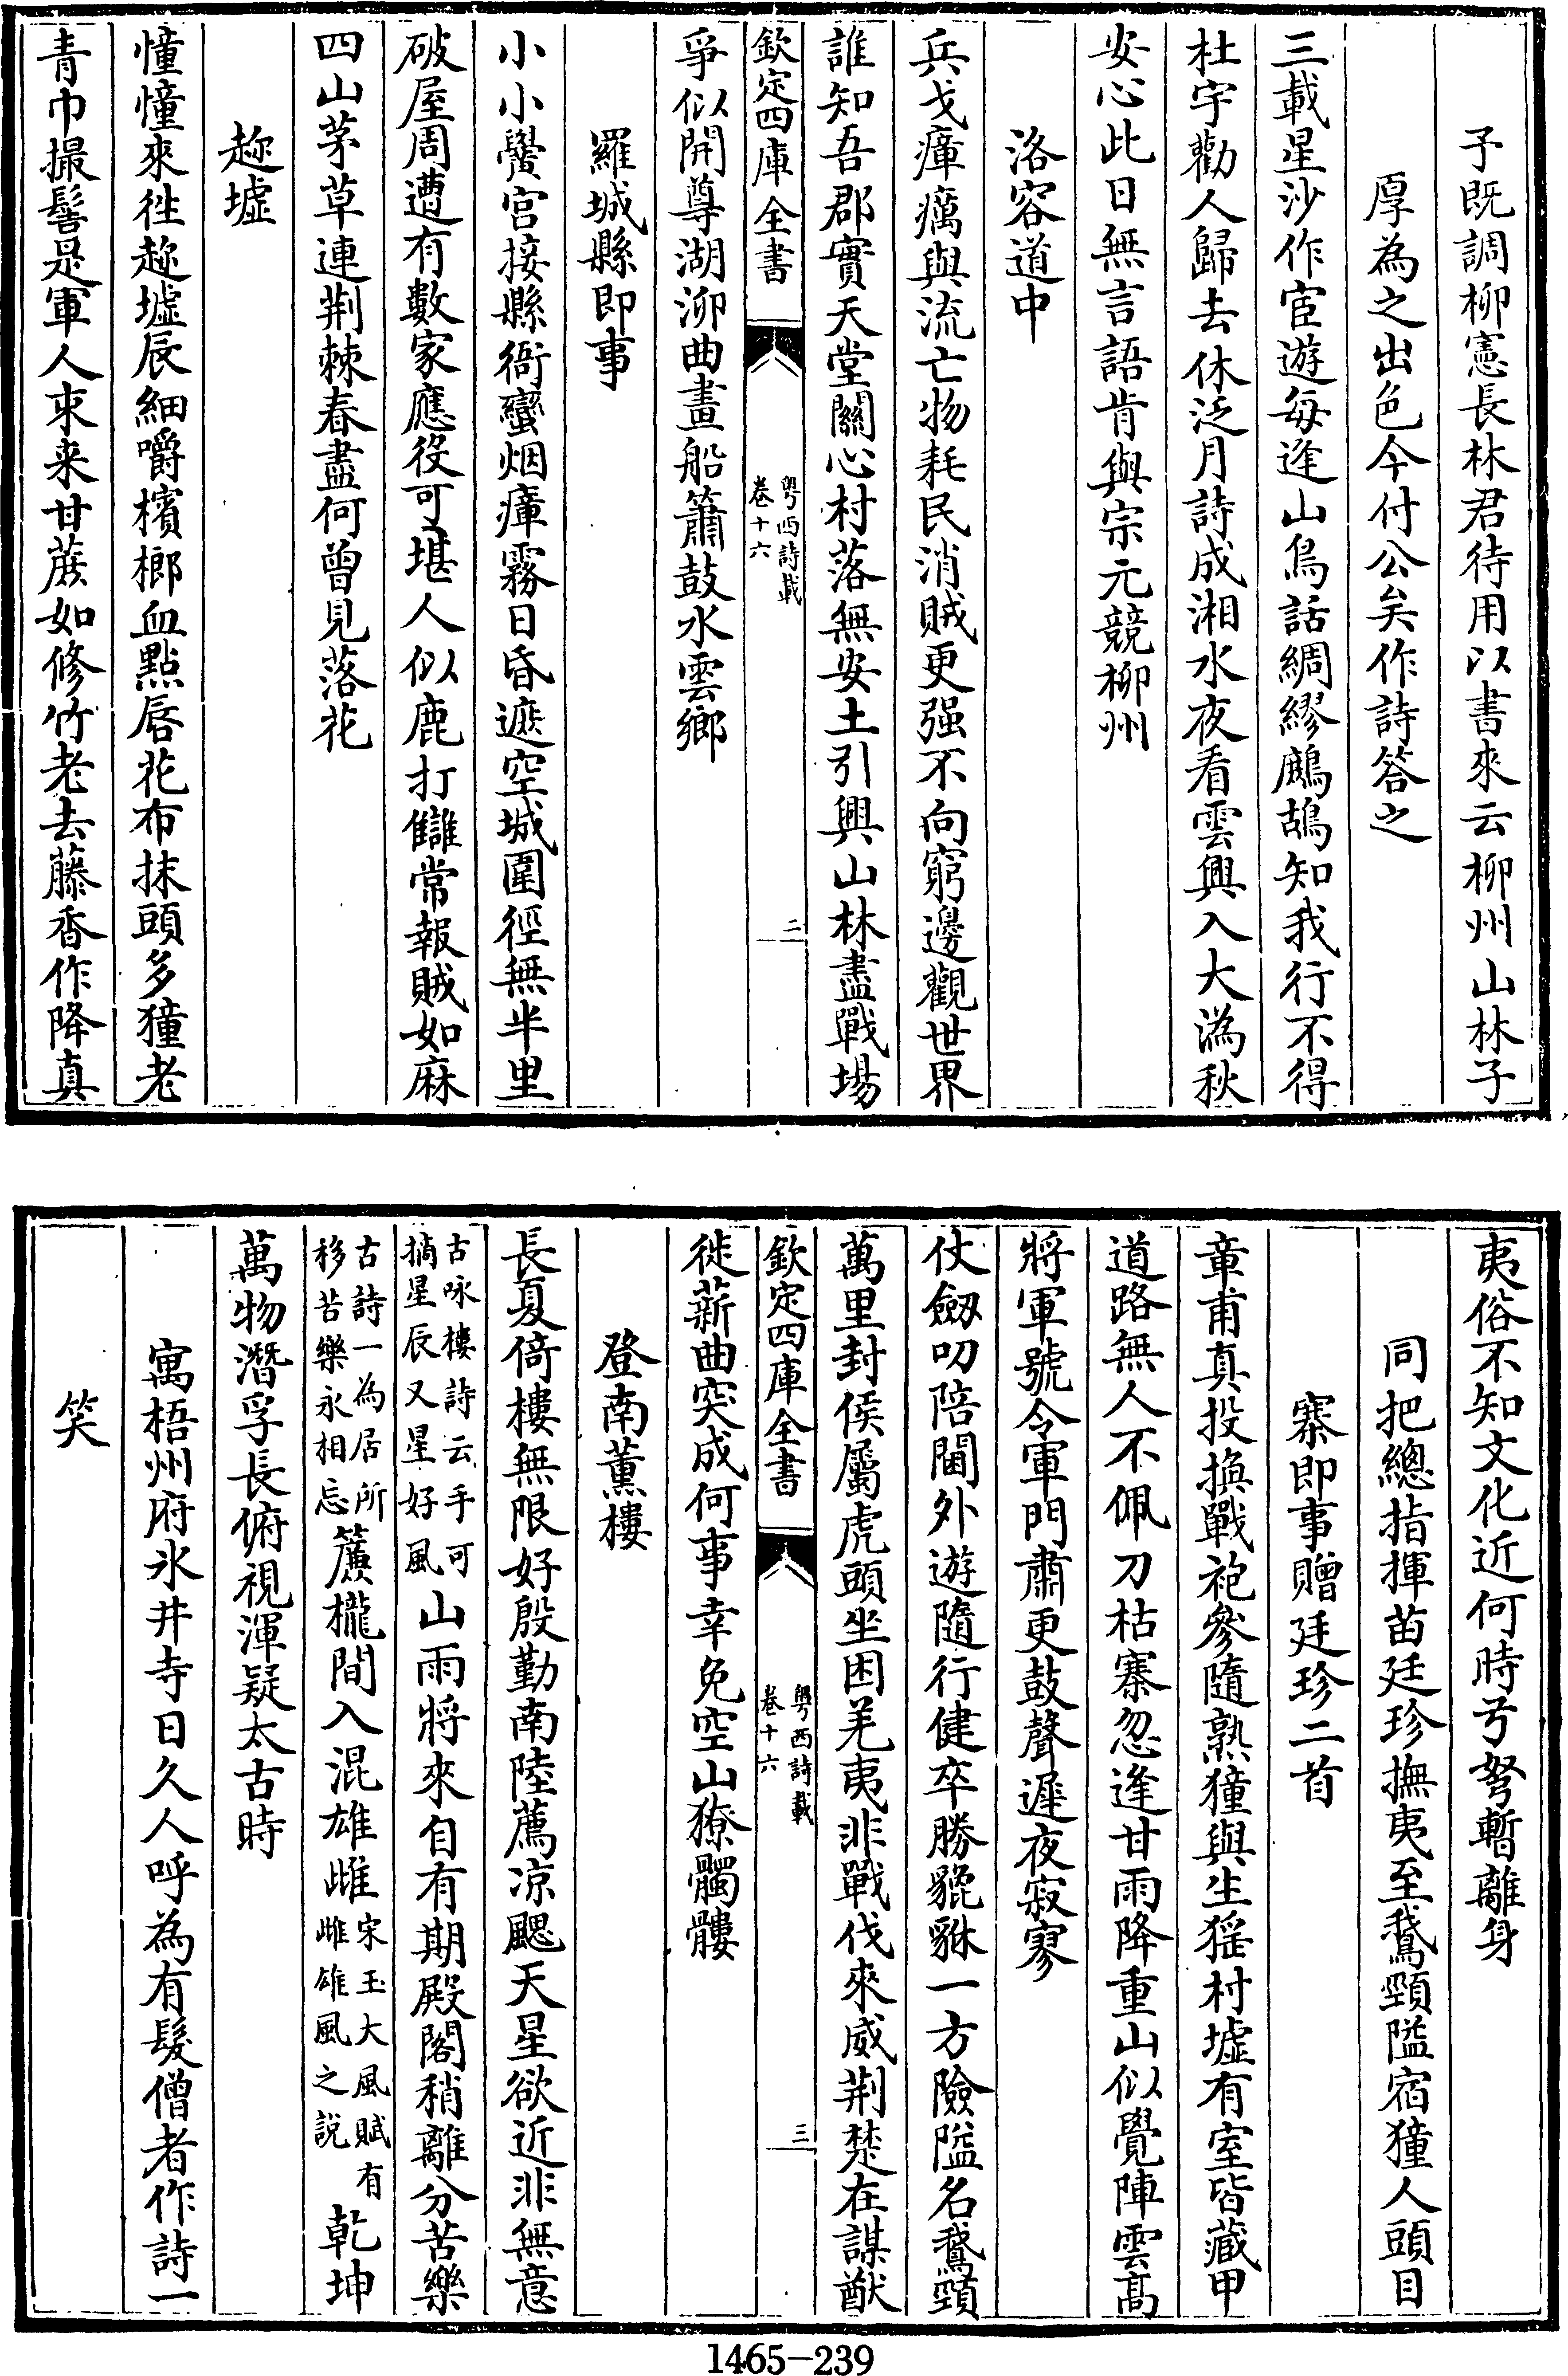 予既調柳憲長林君待用以書來云柳州山林子
厚為之出色今付公矣作詩答之
三載星沙作宦遊每逢山鳥話綢繆鷓鴣知我行不得
杜宇勸人歸去休泛月詩成湘水夜看雲興入大溈秋
安心此日無言語肯與宗元競柳州
洛容道中
兵戈瘴癘與流亡物耗民消賊更强不向窮邊觀世界
誰知吾郡實天堂關心村落無安土引興山林盡戰場
欽定四庫全書
粤西詩載
卷十六
二
爭似開尊湖泖曲畫船簫鼓水雲鄉
羅城縣即事
小小黌宫接縣衙蠻烟瘴霧日昏遮空城圍徑無半里
破屋周遭有數家應役可堪人似鹿打讎常報賊如麻
四山茅草連荆棘春盡何曾見落花
趂墟
憧憧來徃趂墟辰細嚼檳榔血點唇花布抹頭多獞老
青巾撮髻是軍人束来甘蔗如修竹老去藤香作降真
夷俗不知文化近何時弓弩暫離身
同把總指揮苗廷珍撫夷至鵞頸隘宿獞人頭目
寨即事贈廷珍二首
章甫真投換戰袍參隨熟獞與生猺村墟有室皆藏甲
道路無人不佩刀枯寨忽逢甘雨降重山似覺陣雲高
將軍號令軍門肅更鼓聲遲夜寂寥
仗劔叨陪閫外遊隨行健卒勝貔貅一方險隘名鵞頸
萬里封侯屬虎頭坐困羌夷非戰伐來威荆楚在謀猷
欽定四庫全書
粤西詩載
卷十六
三
徙薪曲突成何事幸免空山獠髑髏
登南薰樓
長夏倚樓無限好殷勤南陸薦凉颸天星欲近非無意
古咏樓詩云手可
摘星辰又星好風
山雨將來自有期殿閣稍離分苦樂
古詩一為居所
移苦樂永相忘
簾櫳間入混雄雌
宋玉大風賦有
雌雄風之說
乾坤
萬物潛孚長俯視渾疑太古時
寓梧州府氷井寺日久人呼為有髮僧者作詩一
笑
1465-239